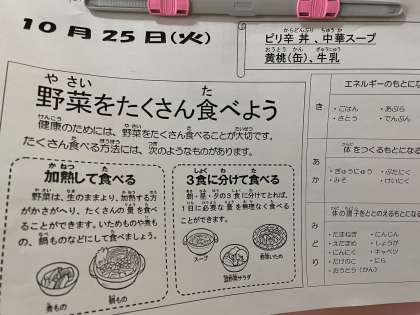 10月25日(火)
ピリ辛丼、中華スープ
黄桃(缶)、牛乳
野菜をたくさん食べよう
健康のためには、野菜をたくさん食べることが大切です。
たくさん食べる方法には、次のようなものがあります。
加熱して食べる
野菜は、生のままより、加熱する方
がかさがへり、たくさんの量を食べ
ることができます。いためものや煮も
の、鍋ものなどにして食べましょう。
煮もの
鍋もの
3食に分けて食べる
朝・昼・夕の3食に分けてとれば、
1日に必要な量を無理なく食べる
ことができます。
スープ
温野菜サラダ
野菜いため
エネルギーのもとにな
き
・ごはん ・あぶら
・さとう ・でんぷん
体をつくるもとになる
あか
・ぎゅうにゅう ・ぶたにく
・みそ ・けいにく
体の調子をととのえるもとになる
みどり
・たまねぎ ・にんじん
・えだまめ ・しょうが
・にんにく ・キャベツ
・たけのこ ・にら
・おうとう(かん)